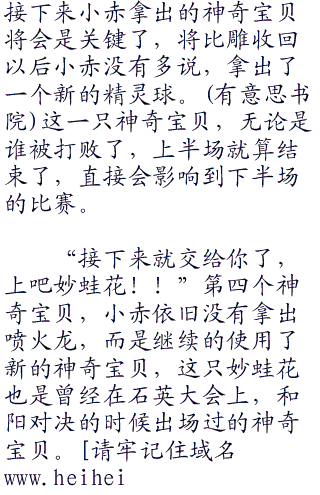 接下来小赤拿出的神奇宝贝
将会是关键了，将比雕收回
以后小赤没有多说，拿出了
一个新的精灵球。(有意思书
院)这一只神奇宝贝，无论是
谁被打败了，上半场就算结
束了，直接会影响到下半场
的比赛。
“接下来就交给你了，
上吧妙蛙花！！”第四个神
奇宝贝，小赤依旧没有拿出
喷火龙，而是继续的使用了
新的神奇宝贝，这只妙蛙花
也是曾经在石英大会上，和
阳对决的时候出场过的神奇
宝贝。[请牢记住域名
www.heihei